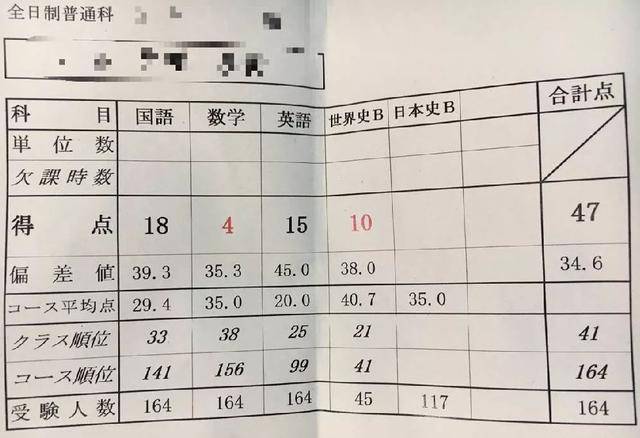 全日制普通科
科目 国語 数学 英語 世界史B 日本史B 合計点
単位数
欠課時数
得点 18 4 15 10 47
偏差値 39.3 35.3 45.0 38.0 34.6
コース平均点 29.4 35.0 20.0 40.7 35.0
クラス順位 33 38 25 21 41
コース順位 141 156 99 41 164
受験人数 164 164 164 45 117 164